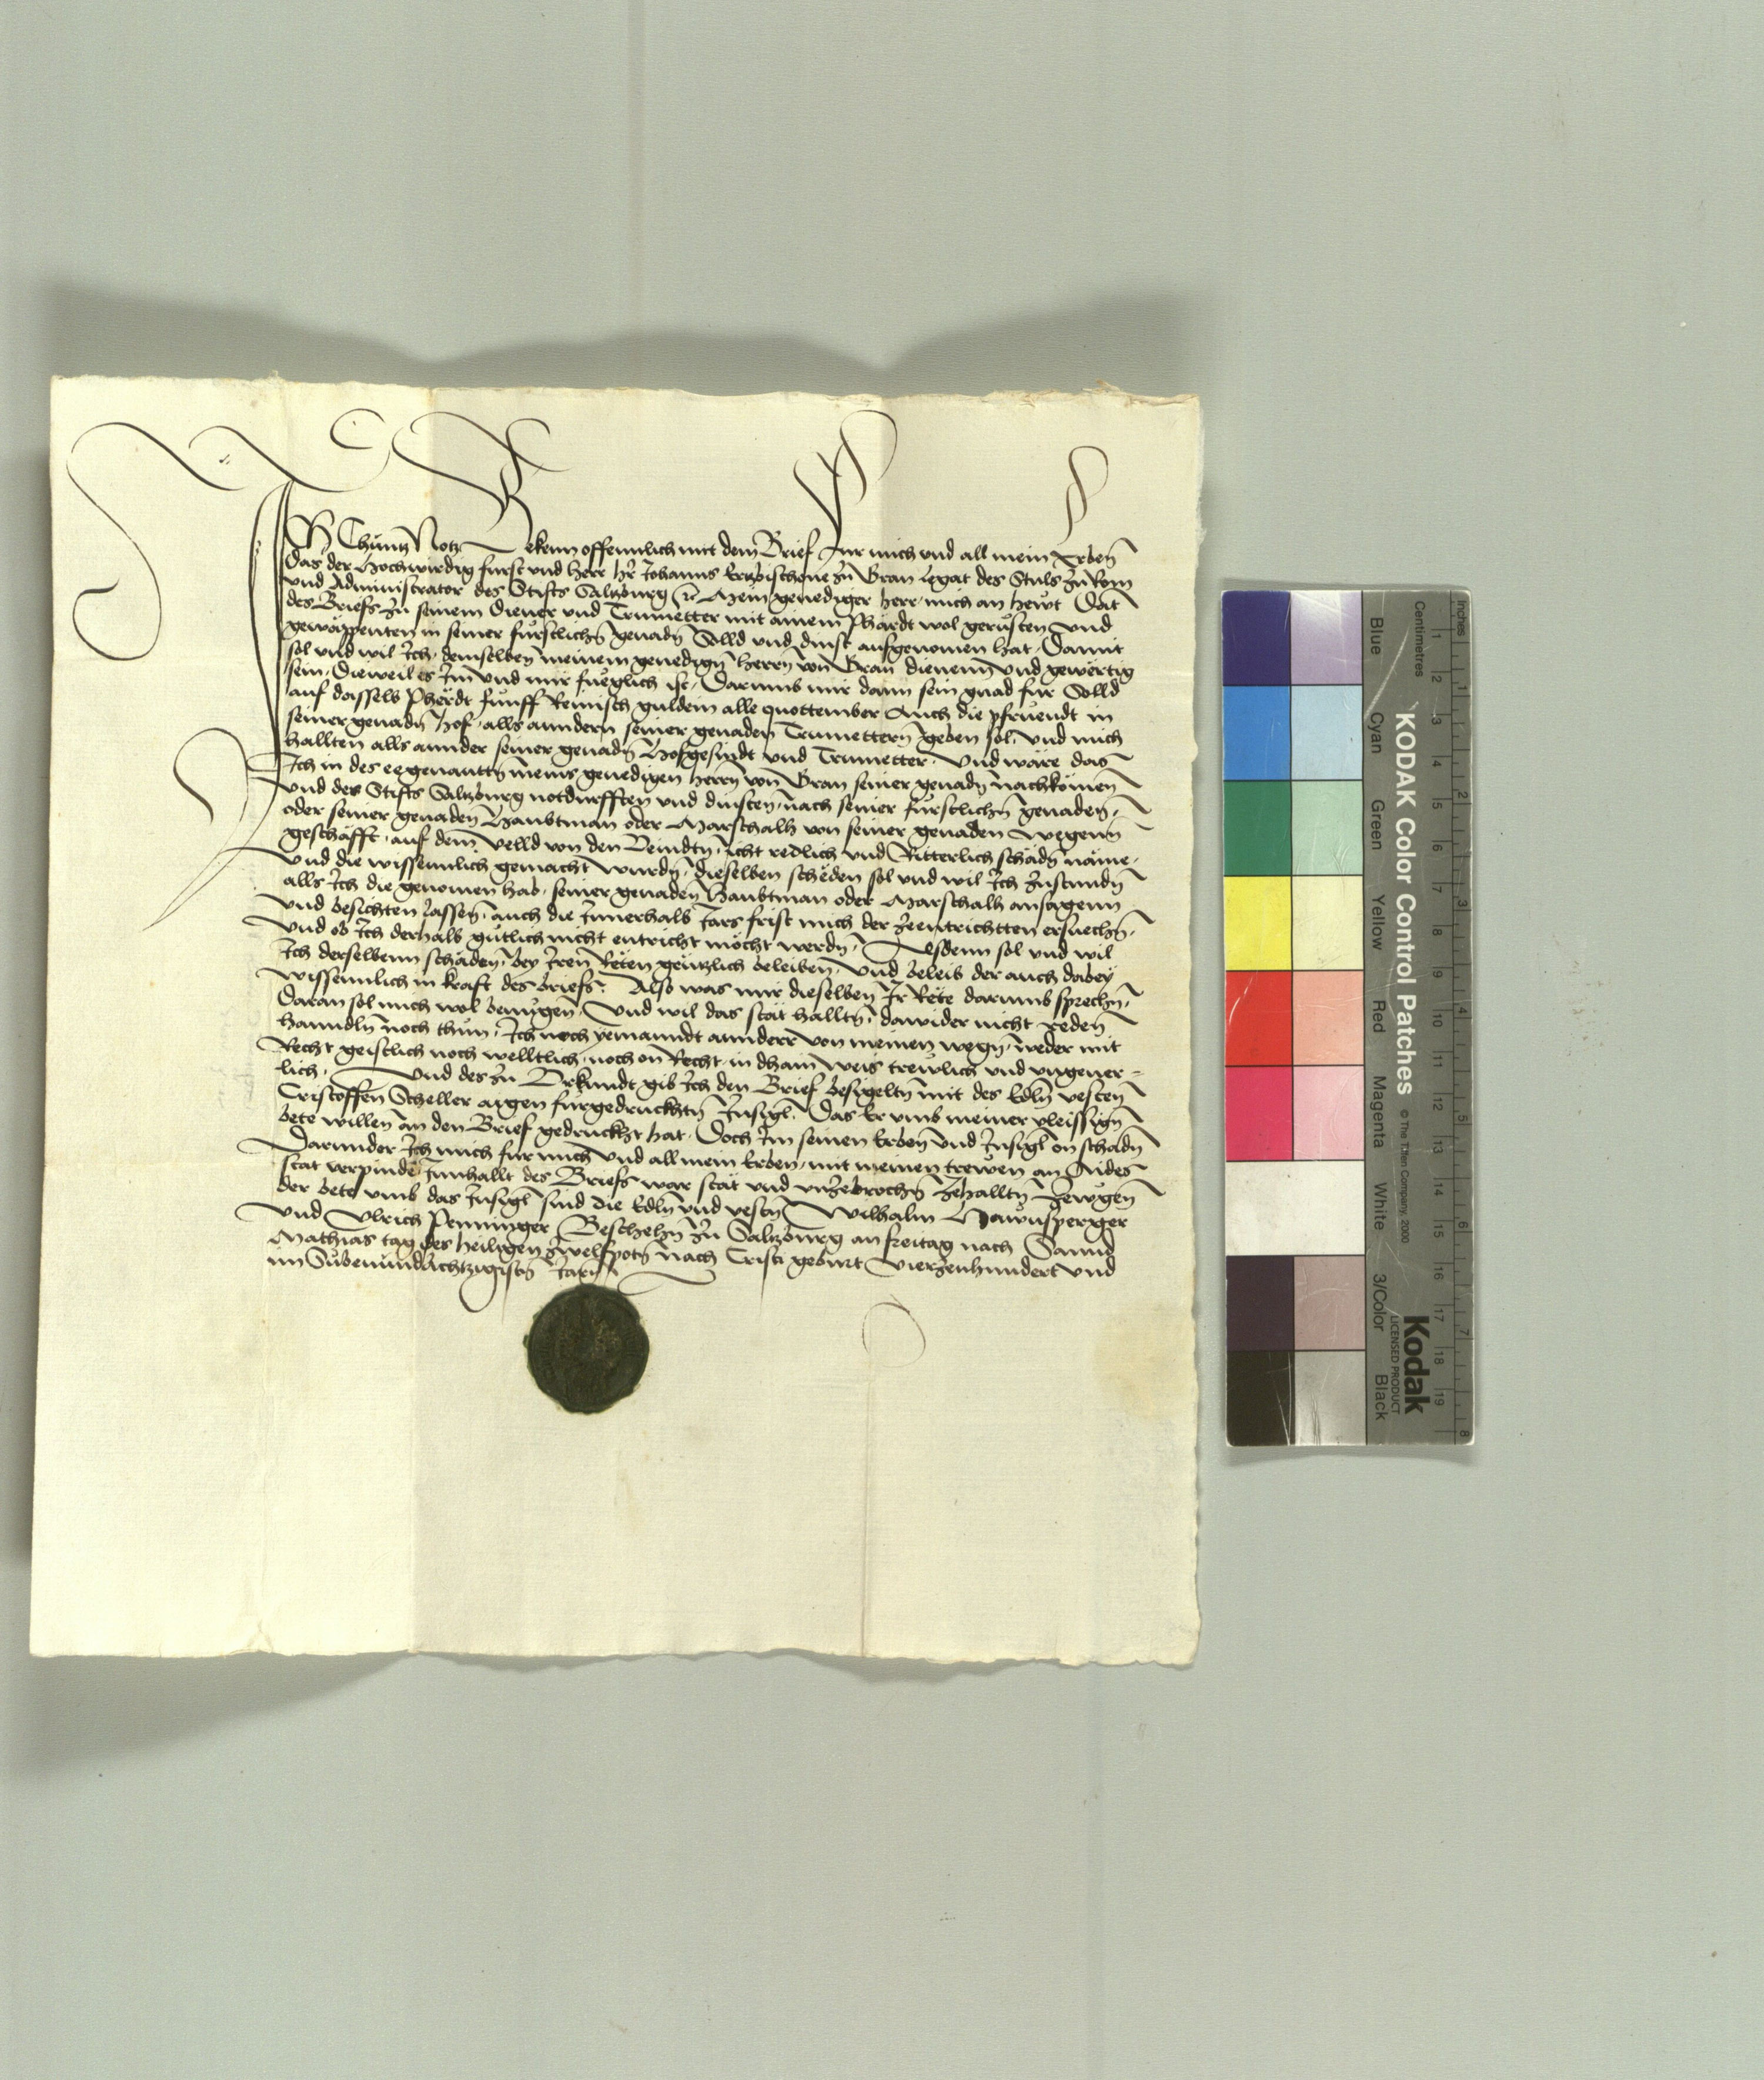 Ich Chuntz Notz Bekenn offennlich mit dem Brief Fur mich und all mein Erben̄
Das der Hochwirdig furst und herr hr̄ Johanns Ertzbischove zu Gran Legat des Stuls zu Rom
und Administrator des Stifts Saltzburg ꝛc Mein genediger herr mich an hewt Dat
des Briefs zu seinem Diener und Trumetter mit ainem Phärdt wol gerusten und
gewappenten in seiner furstlichn̄ genadn̄ Solld und dinst aufgenomen hat, Damit
sol und wil Ich, demselben meinem genedign̄ herrn̄ von Gran dienenn̄ und gewërtig
sein, Dieweil es Im und mir fueglich ist, Darumb mir dann sein gnad fur Solld
auf dasselb Pherdt funff Reinisch guldein alle quottember Auch die pfruendt in
seiner genadn̄ hof, alls anndern seiner genaden Trumettern̄ geben sol, und mich
hallten alls annder seiner genadn̄ hofgesindt und Trumetter. Und wäre das
Ich in des egenanttn̄ meins genedigen herrn̄ von Gran seiner genadn̄ nachkomen̄
und des Stifts Saltzburg notdurfften und dinsten, nach seiner furstlichn̄ genaden,
oder seiner genaden Haubtman oder Marschalh von seiner genaden wegenn̄
geschäfft, auf dem Velld von den Veindtn̄, icht redlich und Ritterlich schädn̄ näme,
Und die wissenntlich gemacht wurdn̄, dieselben schëden sol und wil Ich zustundn̄
alls Ich die genomen hab, seiner genaden Haubtman oder Marschalh ansagenn
und besichten lassen̄, auch die Innerhalb Jars frist mich der zeentrichtten ersuechn̄,
Und ob Ich derhalb gutlich nicht entricht möcht werdn̄, Alsdenn sol und wil
Ich derselbenn schäden, bey Iren Reten gëntzlich beleiben, Und beleib der auch dabey
wissenntlich in kraft des briefs. Also was mir dieselben Ir Rëte darumb sprechn̄,
Daran sol mich wol benugen̄, Und wil das stät halltn̄, dawider nicht reden̄
hanndln̄ noch thun, Ich noch yemanndt annderr von meinen wegn̄, weder mit
Recht geistlich noch welltlich, noch on Recht, in dhain weis trewlich und ungever-
lich. Und des zu Urkundt gib Ich den Brief besigeltn̄ mit des Edln̄ vesten
Cristoffen Scheller aigen furgedruckhtn̄ Insigl. Das Er umb meiner vleissign̄
bete willen̄ an den Brief gedruckht hat, Doch Im seinen Erben̄ und Insigl̄ on schadn̄
Darunder Ich mich fur mich und all mein Erben, mit meinen trewen an Aides
stat verpinde Innhallt des Briefs war stät und unzebrochn̄ zehalltn̄ Zewgen̄
der bete umb das Insigl̄ sind die Edln̄ und vestn̄ Wilhalm Hawnsperger
und Ulrich Penninger Beschehn̄ zu Saltzburg an freitag nach Sannd
Mathias tag des heiligen zwelfpotn̄ nach Cristi geburt Vierzenhundert und
im Subenundachtzigistn̄ Jarn̄
KODAK Color Control Patches
© The Tiffen Company, 2000
Kodak
LICENSED PRODUCT
Inches
Centimetres
1 2 3 4 5 6 7 8
1 2 3 4 5 6 7 8 9 10 11 12 13 14 15 16 17 18 19
Blue Cyan Green Yellow Red Magenta White 3/Color Black